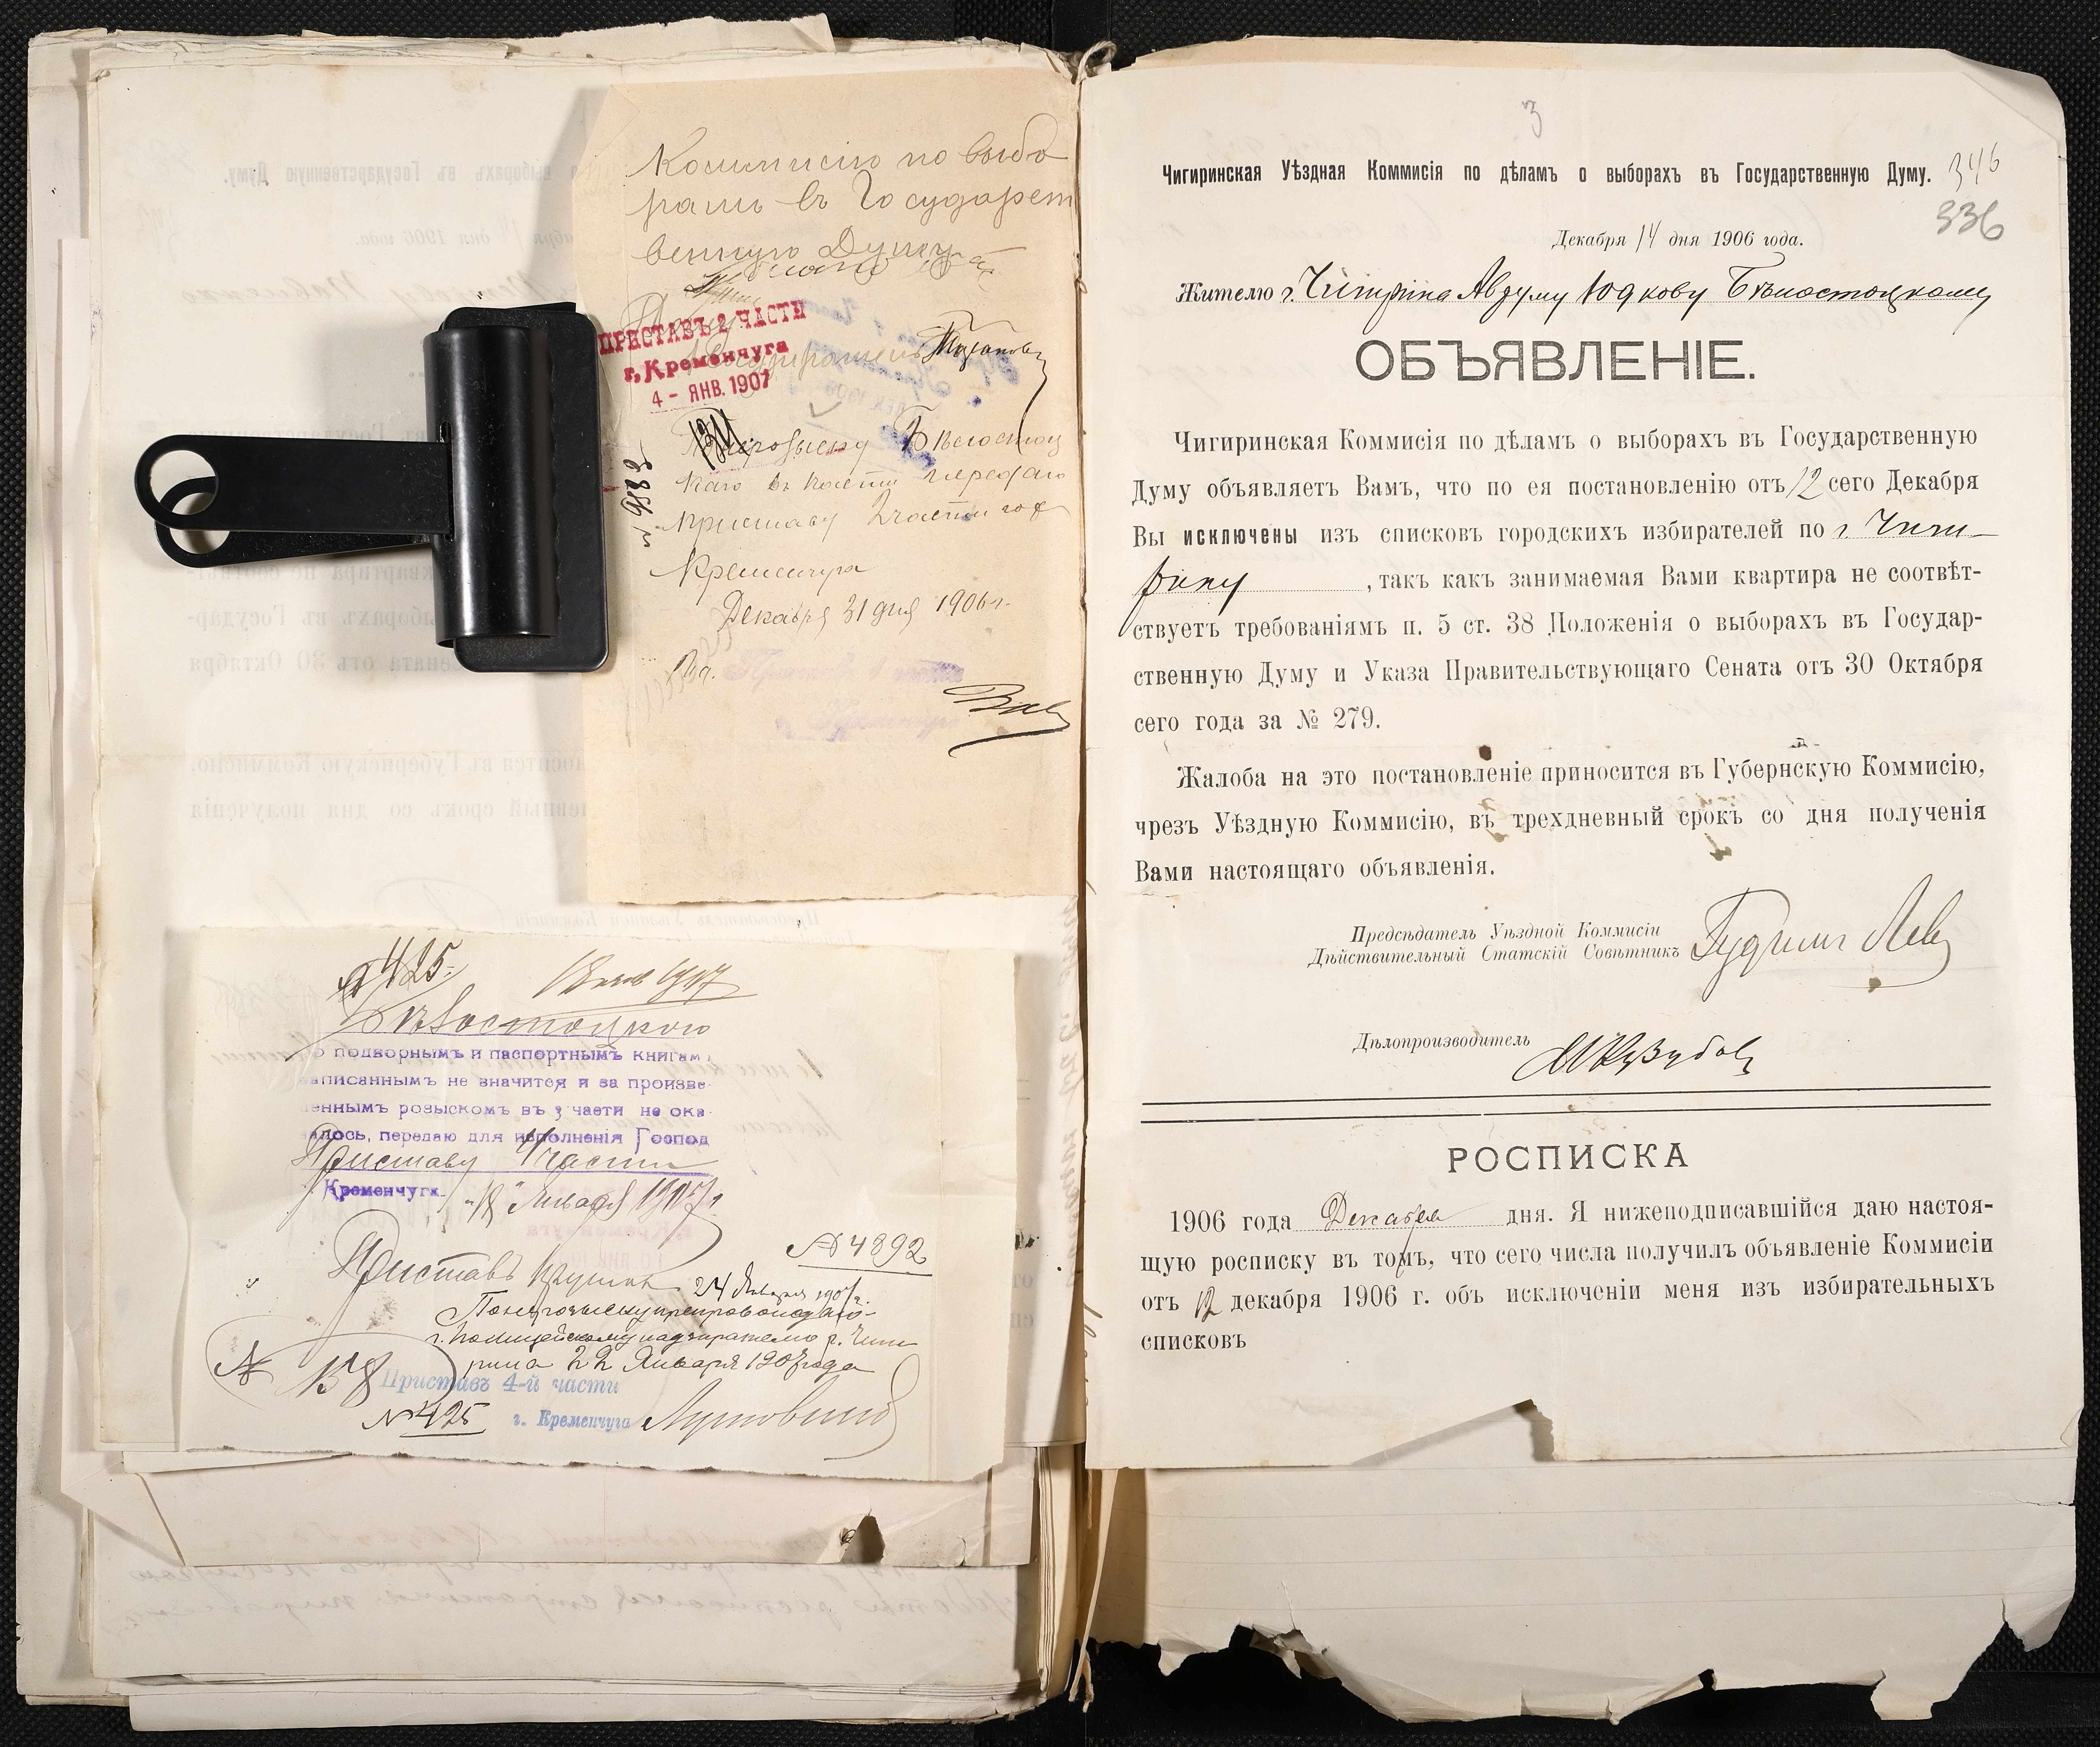 Коммисію по выбо
рамъ въ Государст
венную Думу
ПРИСТАВЪ 2 ЧАСТИ
г. Кременчуга
4 - ЯНВ. 1907
Бѣлостоц
каго
передаю
приставу 2 части гор
Кременчуга
Декабря 31 дня 1906 г.
№ 425.
18 янв 1907
Бѣлостоцкого
о подворнымъ и паспортнымъ книгам
записаннымъ не значится и за произве-
деннымъ розыскомъ въ 3 части не ока-
залось, передаю для исполненія Господ
Приставу 4 части
Кременчуга. "18" Января 1907 г.
Приставъ
№ 4892
24 Января 1907 г.
По неррозыску препровождаю
г. Полицейскому надзирателю г. Чиги
рина 22 Января 1907 года
Приставъ 4-й части
№ 425 г. Кременчуга
3
Чигиринская Уѣздная Коммисія по дѣламъ о выборахъ въ Государственную Думу.
346
336
Декабря 14 дня 1906 года.
Жителю г. Чигирина Авдуму Юдкову Бѣлостоцкому
ОБЪЯВЛЕНІЕ.
Чигиринская Коммисія по дѣламъ о выборахъ въ Государственную
Думу объявляетъ Вамъ, что по ея постановленію отъ 12 сего Декабря
Вы исключены изъ списковъ городскихъ избирателей по г. Чиги-
рину, такъ какъ занимаемая Вами квартира не соотвѣт-
ствуетъ требованіямъ п. 5 ст. 38 Положенія о выборахъ въ Государ-
ственную Думу и Указа Правительствующаго Сената отъ 30 Октября
сего года за № 279.
Жалоба на это постановленіе приносится въ Губернскую Коммисію,
чрезъ Уѣздную Коммисію, въ трехдневный срокъ со дня полученія
Вами настоящаго объявленія.
Предсѣдатель Уѣздной Коммисіи
Дѣйствительный Статскій Совѣтникъ
Дѣлопроизводитель
РОСПИСКА
1906 года Декабря дня. Я нижеподписавшійся даю настоя-
щую росписку въ томъ, что сего числа получилъ объявленіе Коммисіи
отъ 12 декабря 1906 г. объ исключеніи меня изъ избирательныхъ
списковъ